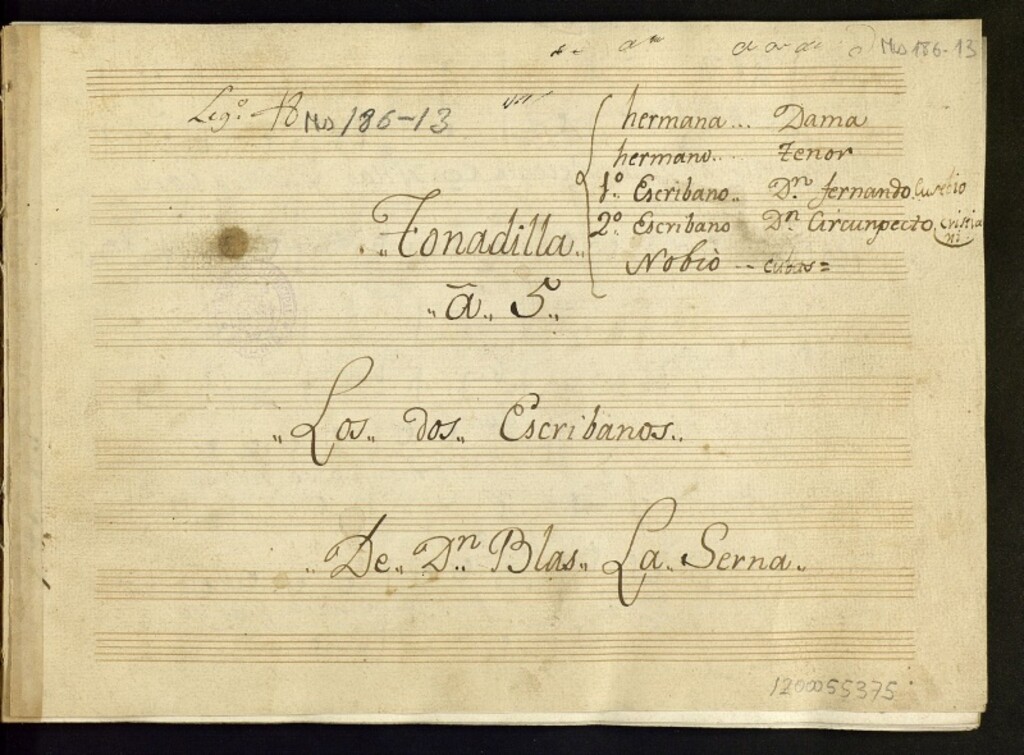 Mus 186-13
Leg.º 18 Mus 186-13
hermana... Dama
hermano.... tenor
1º. Escribano.. Dn. fernando. Eusebio
2º. Escribano Dn Circunpecto. Cristiani
Nobio -- cubas=
"Tonadilla"
"â" 5"
"Los" dos" Escribanos..
"De" Dn. Blas" La" Serna"
1200055375